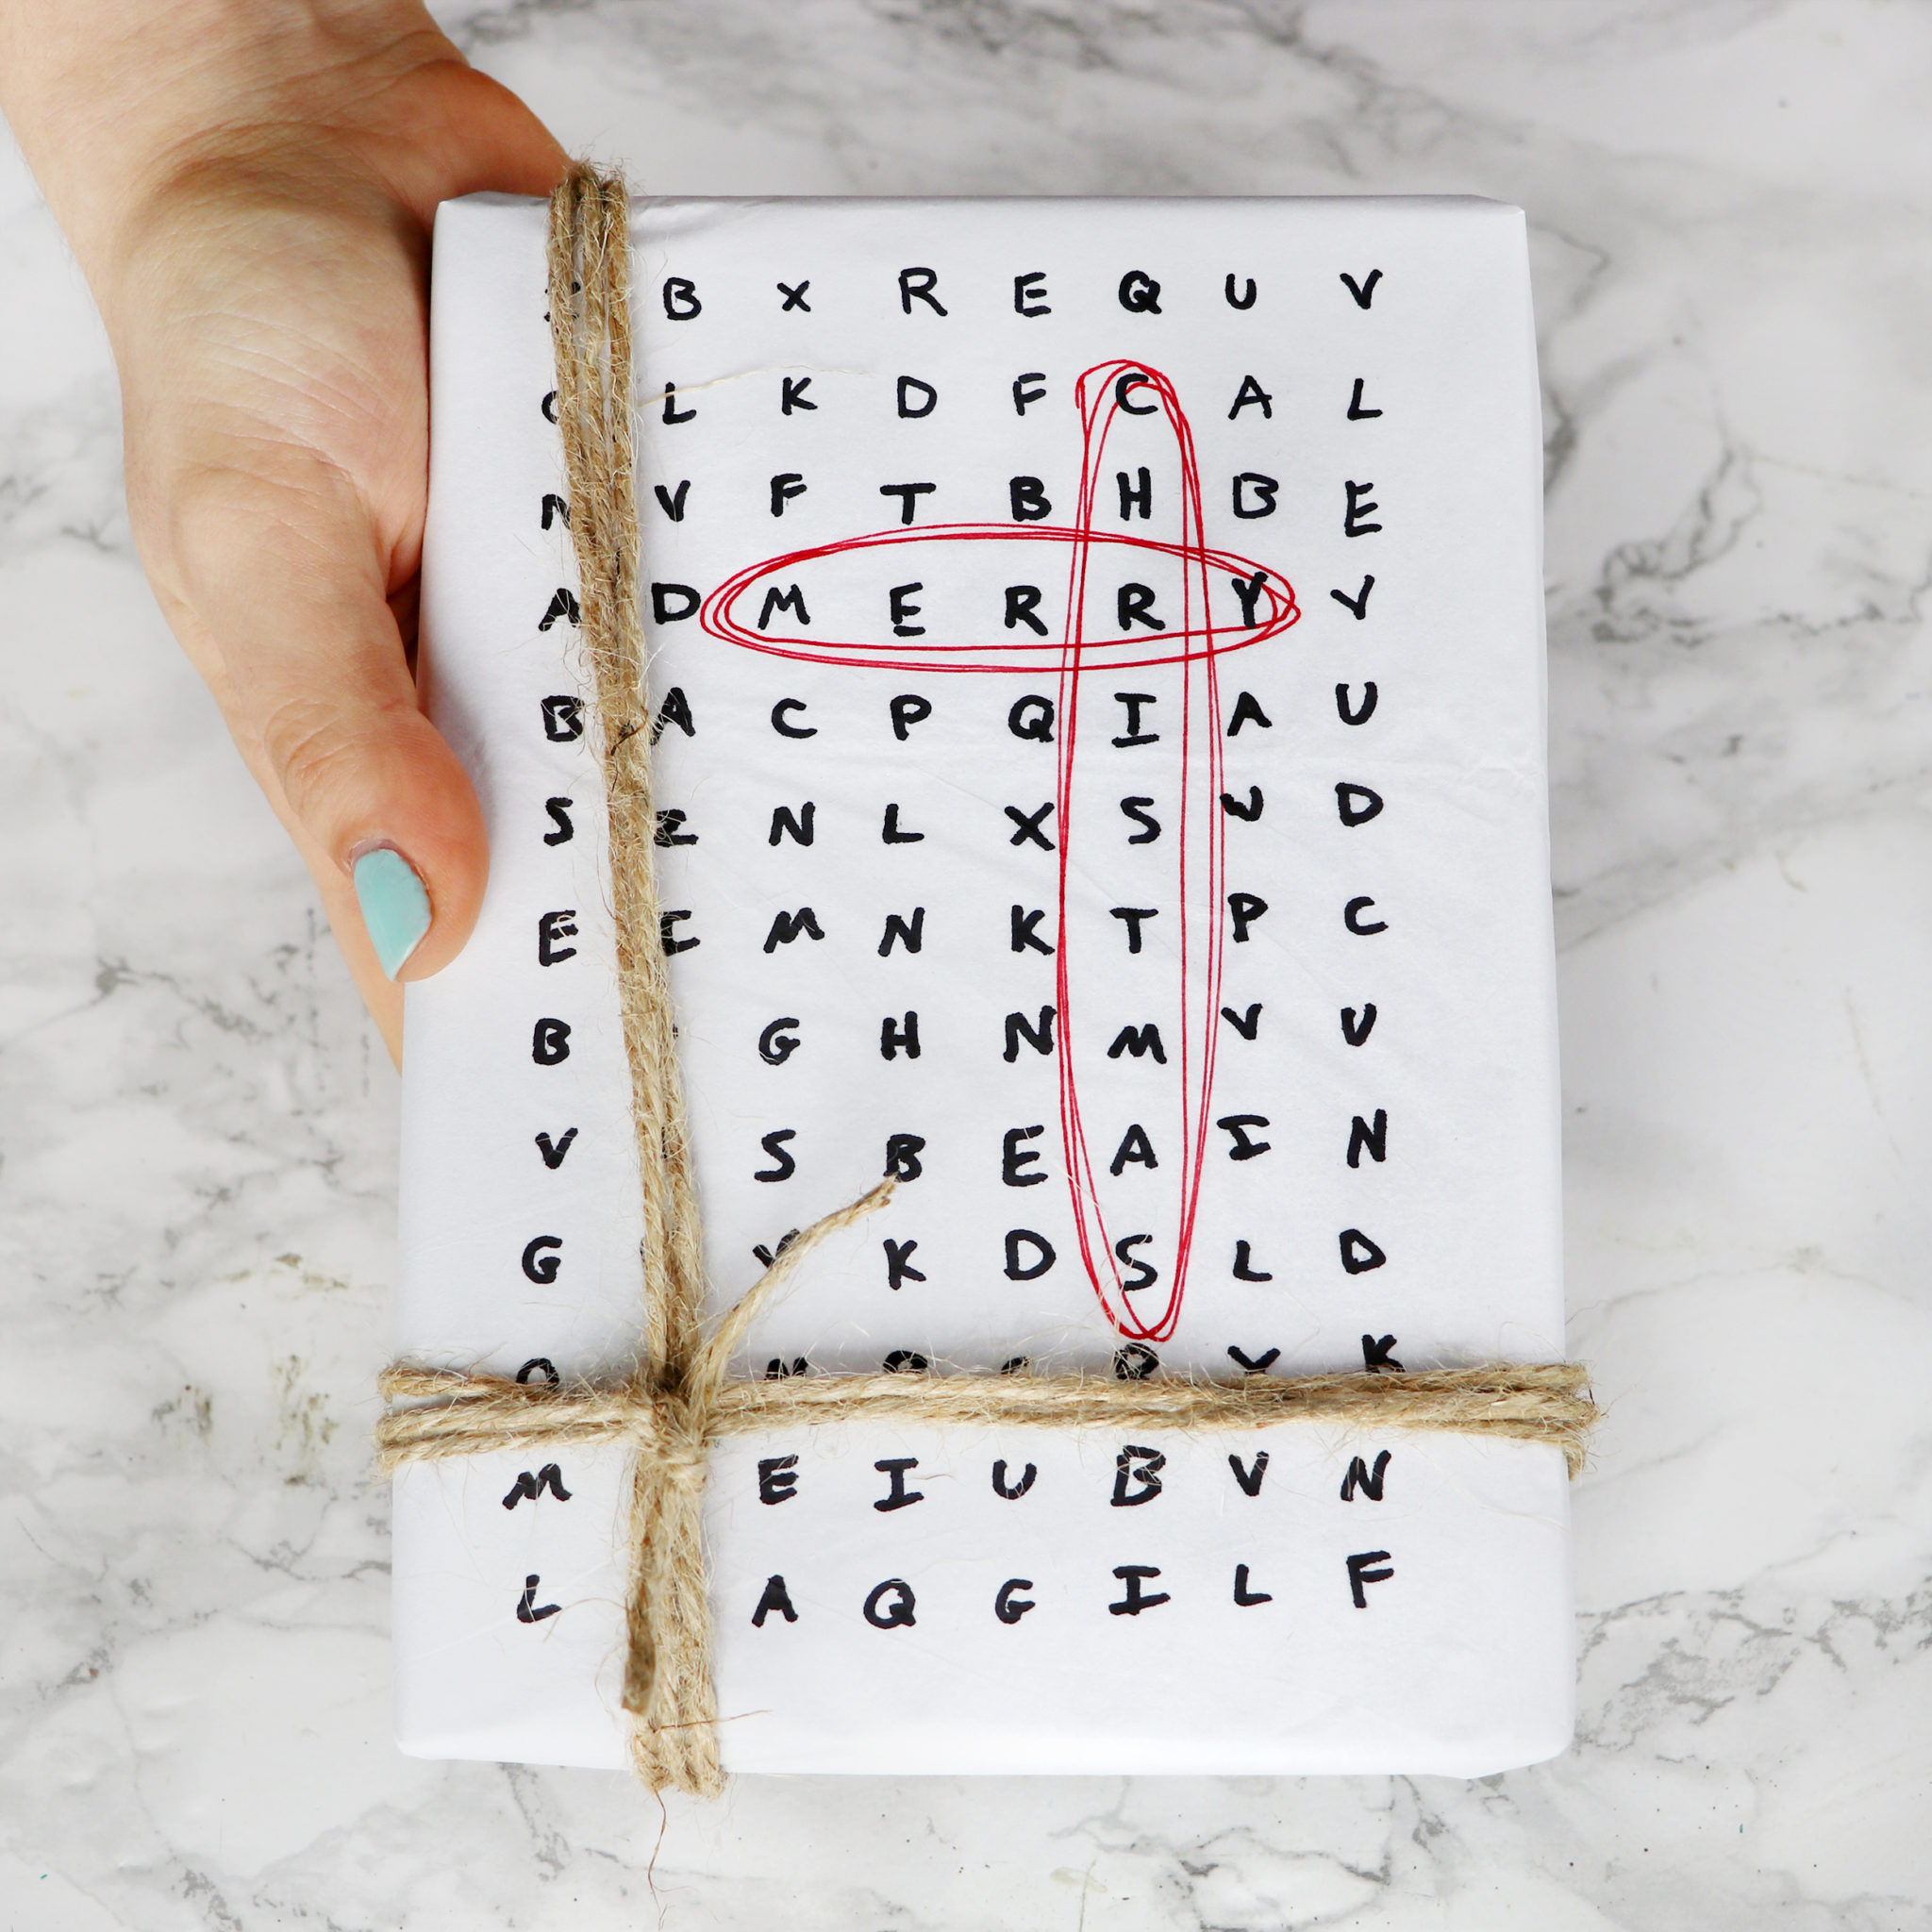 B X R E Q U V
L K D F C A L
N V F T B H B E
A D M E R R Y V
B A C P Q I A U
S Z N L X S J D
E I M N K T P C
B G H N M V U
V S B E A I N
G Y K D S L D
R Y K
M E I U B V N
L A Q G I L F